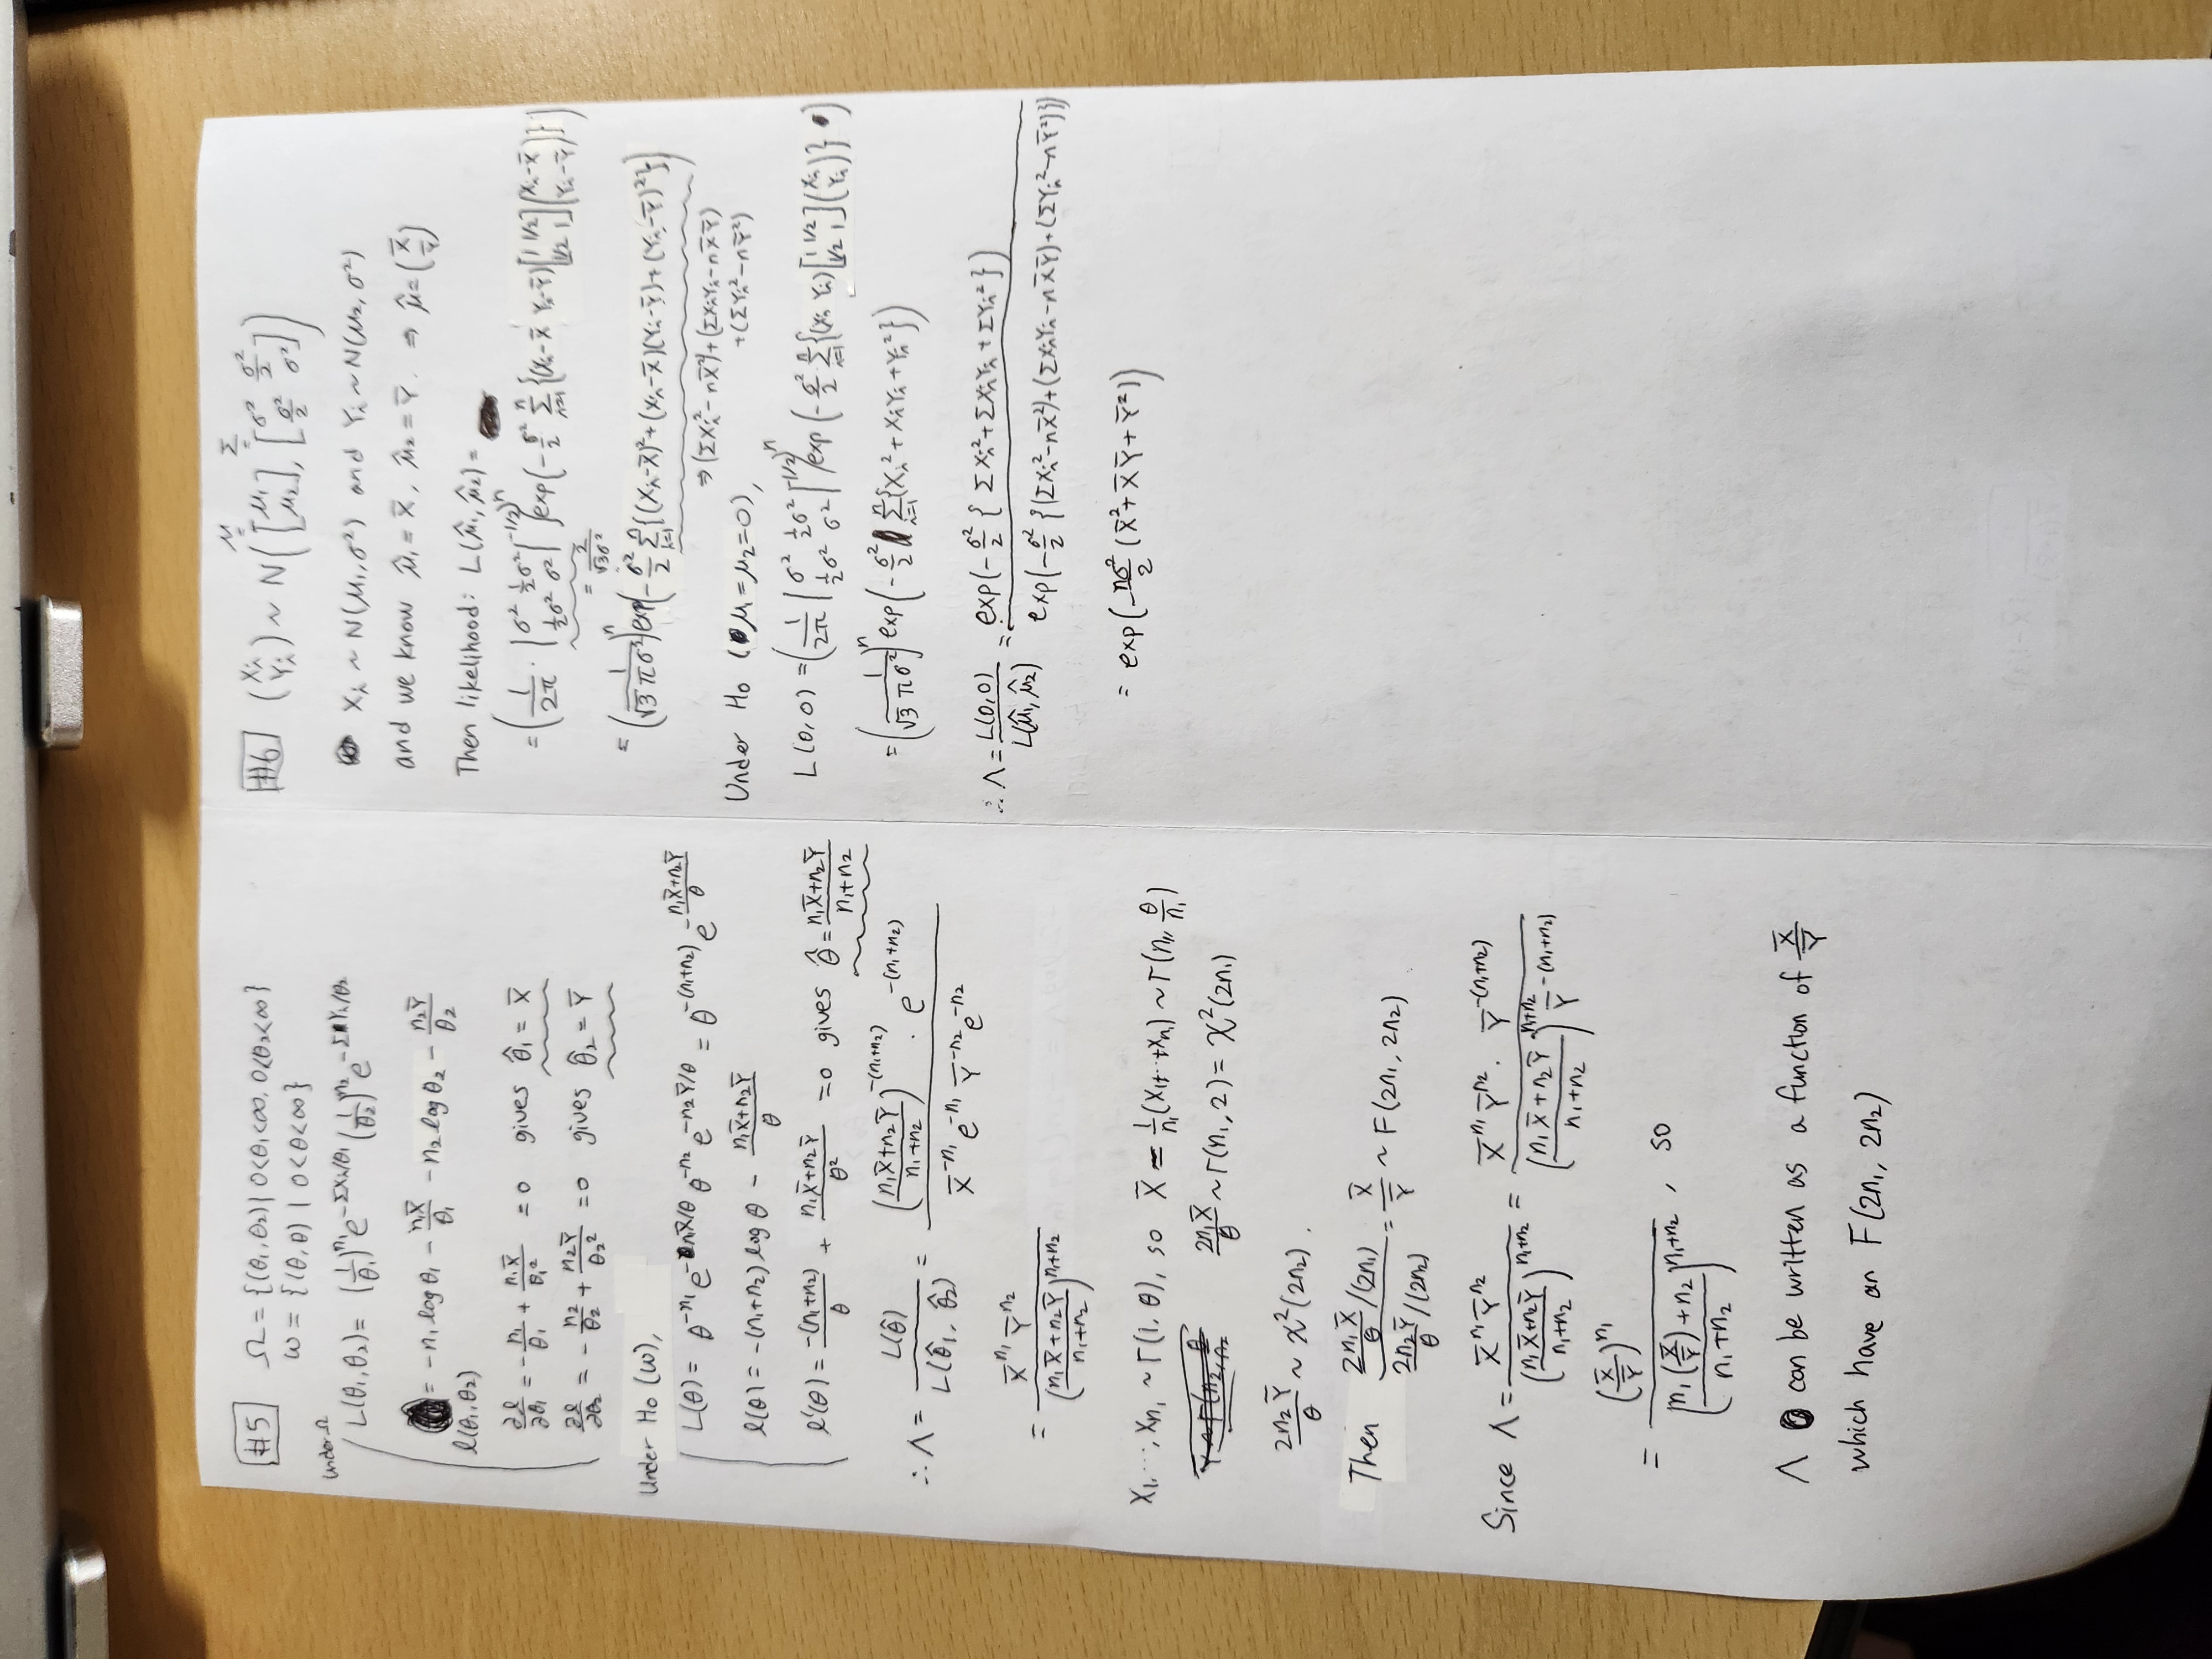 #5 Ω = {(θ₁,θ₂) | 0<θ₁<∞, 0<θ₂<∞}
ω = {(θ,θ) | 0<θ<∞}
under Ω
L(θ₁,θ₂) = (1/θ₁)^n₁ e^(-ΣXᵢ/θ₁) (1/θ₂)^n₂ e^(-ΣYᵢ/θ₂)
l(θ₁,θ₂) = -n₁ log θ₁ - n₁X̄/θ₁ - n₂ log θ₂ - n₂Ȳ/θ₂
∂l/∂θ₁ = -n₁/θ₁ + n₁X̄/θ₁² = 0 gives θ̂₁ = X̄
∂l/∂θ₂ = -n₂/θ₂ + n₂Ȳ/θ₂² = 0 gives θ̂₂ = Ȳ
Under H₀ (ω),
L(θ) = θ^(-n₁) e^(-n₁X̄/θ) θ^(-n₂) e^(-n₂Ȳ/θ) = θ^(-(n₁+n₂)) e^(-(n₁X̄+n₂Ȳ)/θ)
l(θ) = -(n₁+n₂) log θ - (n₁X̄+n₂Ȳ)/θ
l'(θ) = -(n₁+n₂)/θ + (n₁X̄+n₂Ȳ)/θ² = 0 gives θ̂ = (n₁X̄+n₂Ȳ)/(n₁+n₂)
∴ Λ = L(θ̂)/L(θ̂₁,θ̂₂) = ((n₁X̄+n₂Ȳ)/(n₁+n₂))^(-(n₁+n₂)) · e^(-(n₁+n₂)) / X̄^(-n₁) e^(-n₁) Ȳ^(-n₂) e^(-n₂)
= X̄^n₁ Ȳ^n₂ / ((n₁X̄+n₂Ȳ)/(n₁+n₂))^(n₁+n₂)
X₁,⋯,Xn₁ ~ Γ(1,θ), so X̄ = 1/n₁ (X₁+⋯+Xn₁) ~ Γ(n₁, θ/n₁)
2n₁X̄/θ ~ Γ(n₁,2) = χ²(2n₁)
2n₂Ȳ/θ ~ χ²(2n₂).
Then (2n₁X̄/θ /(2n₁)) / (2n₂Ȳ/θ /(2n₂)) = X̄/Ȳ ~ F(2n₁, 2n₂)
Since Λ = X̄^n₁ Ȳ^n₂ / ((n₁X̄+n₂Ȳ)/(n₁+n₂))^(n₁+n₂) = X̄^n₁ Ȳ^n₂ · Ȳ^(-(n₁+n₂)) / ((n₁X̄+n₂Ȳ)/(n₁+n₂))^(n₁+n₂) Ȳ^(-(n₁+n₂))
= (X̄/Ȳ)^n₁ / [(n₁(X̄/Ȳ)+n₂)/(n₁+n₂)]^(n₁+n₂), so
Λ can be written as a function of X̄/Ȳ
which have an F(2n₁, 2n₂)
#6 (Xᵢ Yᵢ) ~ N([μ₁ μ₂], [σ² σ²/2; σ²/2 σ²])
μ = Σ =
Xᵢ ~ N(μ₁,σ²) and Yᵢ ~ N(μ₂,σ²)
and we know μ̂₁ = X̄, μ̂₂ = Ȳ. ⇒ μ̂ = (X̄ Ȳ)
Then likelihood: L(μ̂₁,μ̂₂) =
= (1/2π · |σ² ½σ²; ½σ² σ²|^(-1/2))^n exp(-σ²/2 Σᵢ₌₁ⁿ {(Xᵢ-X̄ Yᵢ-Ȳ)[1 1/2; 1/2 1](Xᵢ-X̄ Yᵢ-Ȳ)})
= 2/√3σ²
= (1/√3πσ²)^n exp(-σ²/2 Σᵢ₌₁ⁿ {(Xᵢ-X̄)²+(Xᵢ-X̄)(Yᵢ-Ȳ)+(Yᵢ-Ȳ)²})
⇒ (ΣXᵢ²-nX̄²)+(ΣXᵢYᵢ-nX̄Ȳ)
+(ΣYᵢ²-nȲ²)
Under H₀ (μ₁=μ₂=0),
L(0,0) = (1/2π |σ² ½σ²; ½σ² σ²|^(1/2))^n exp(-σ²/2 Σᵢ₌₁ⁿ {(Xᵢ Yᵢ)[1 1/2; 1/2 1](Xᵢ Yᵢ)})
= (1/√3πσ²)^n exp(-σ²/2 Σᵢ₌₁ⁿ {Xᵢ²+XᵢYᵢ+Yᵢ²})
∴ Λ = L(0,0)/L(μ̂₁,μ̂₂) = exp(-σ²/2 {ΣXᵢ²+ΣXᵢYᵢ+ΣYᵢ²}) / exp(-σ²/2 {(ΣXᵢ²-nX̄²)+(ΣXᵢYᵢ-nX̄Ȳ)+(ΣYᵢ²-nȲ²)})
= exp(-nσ²/2 (X̄²+X̄Ȳ+Ȳ²))